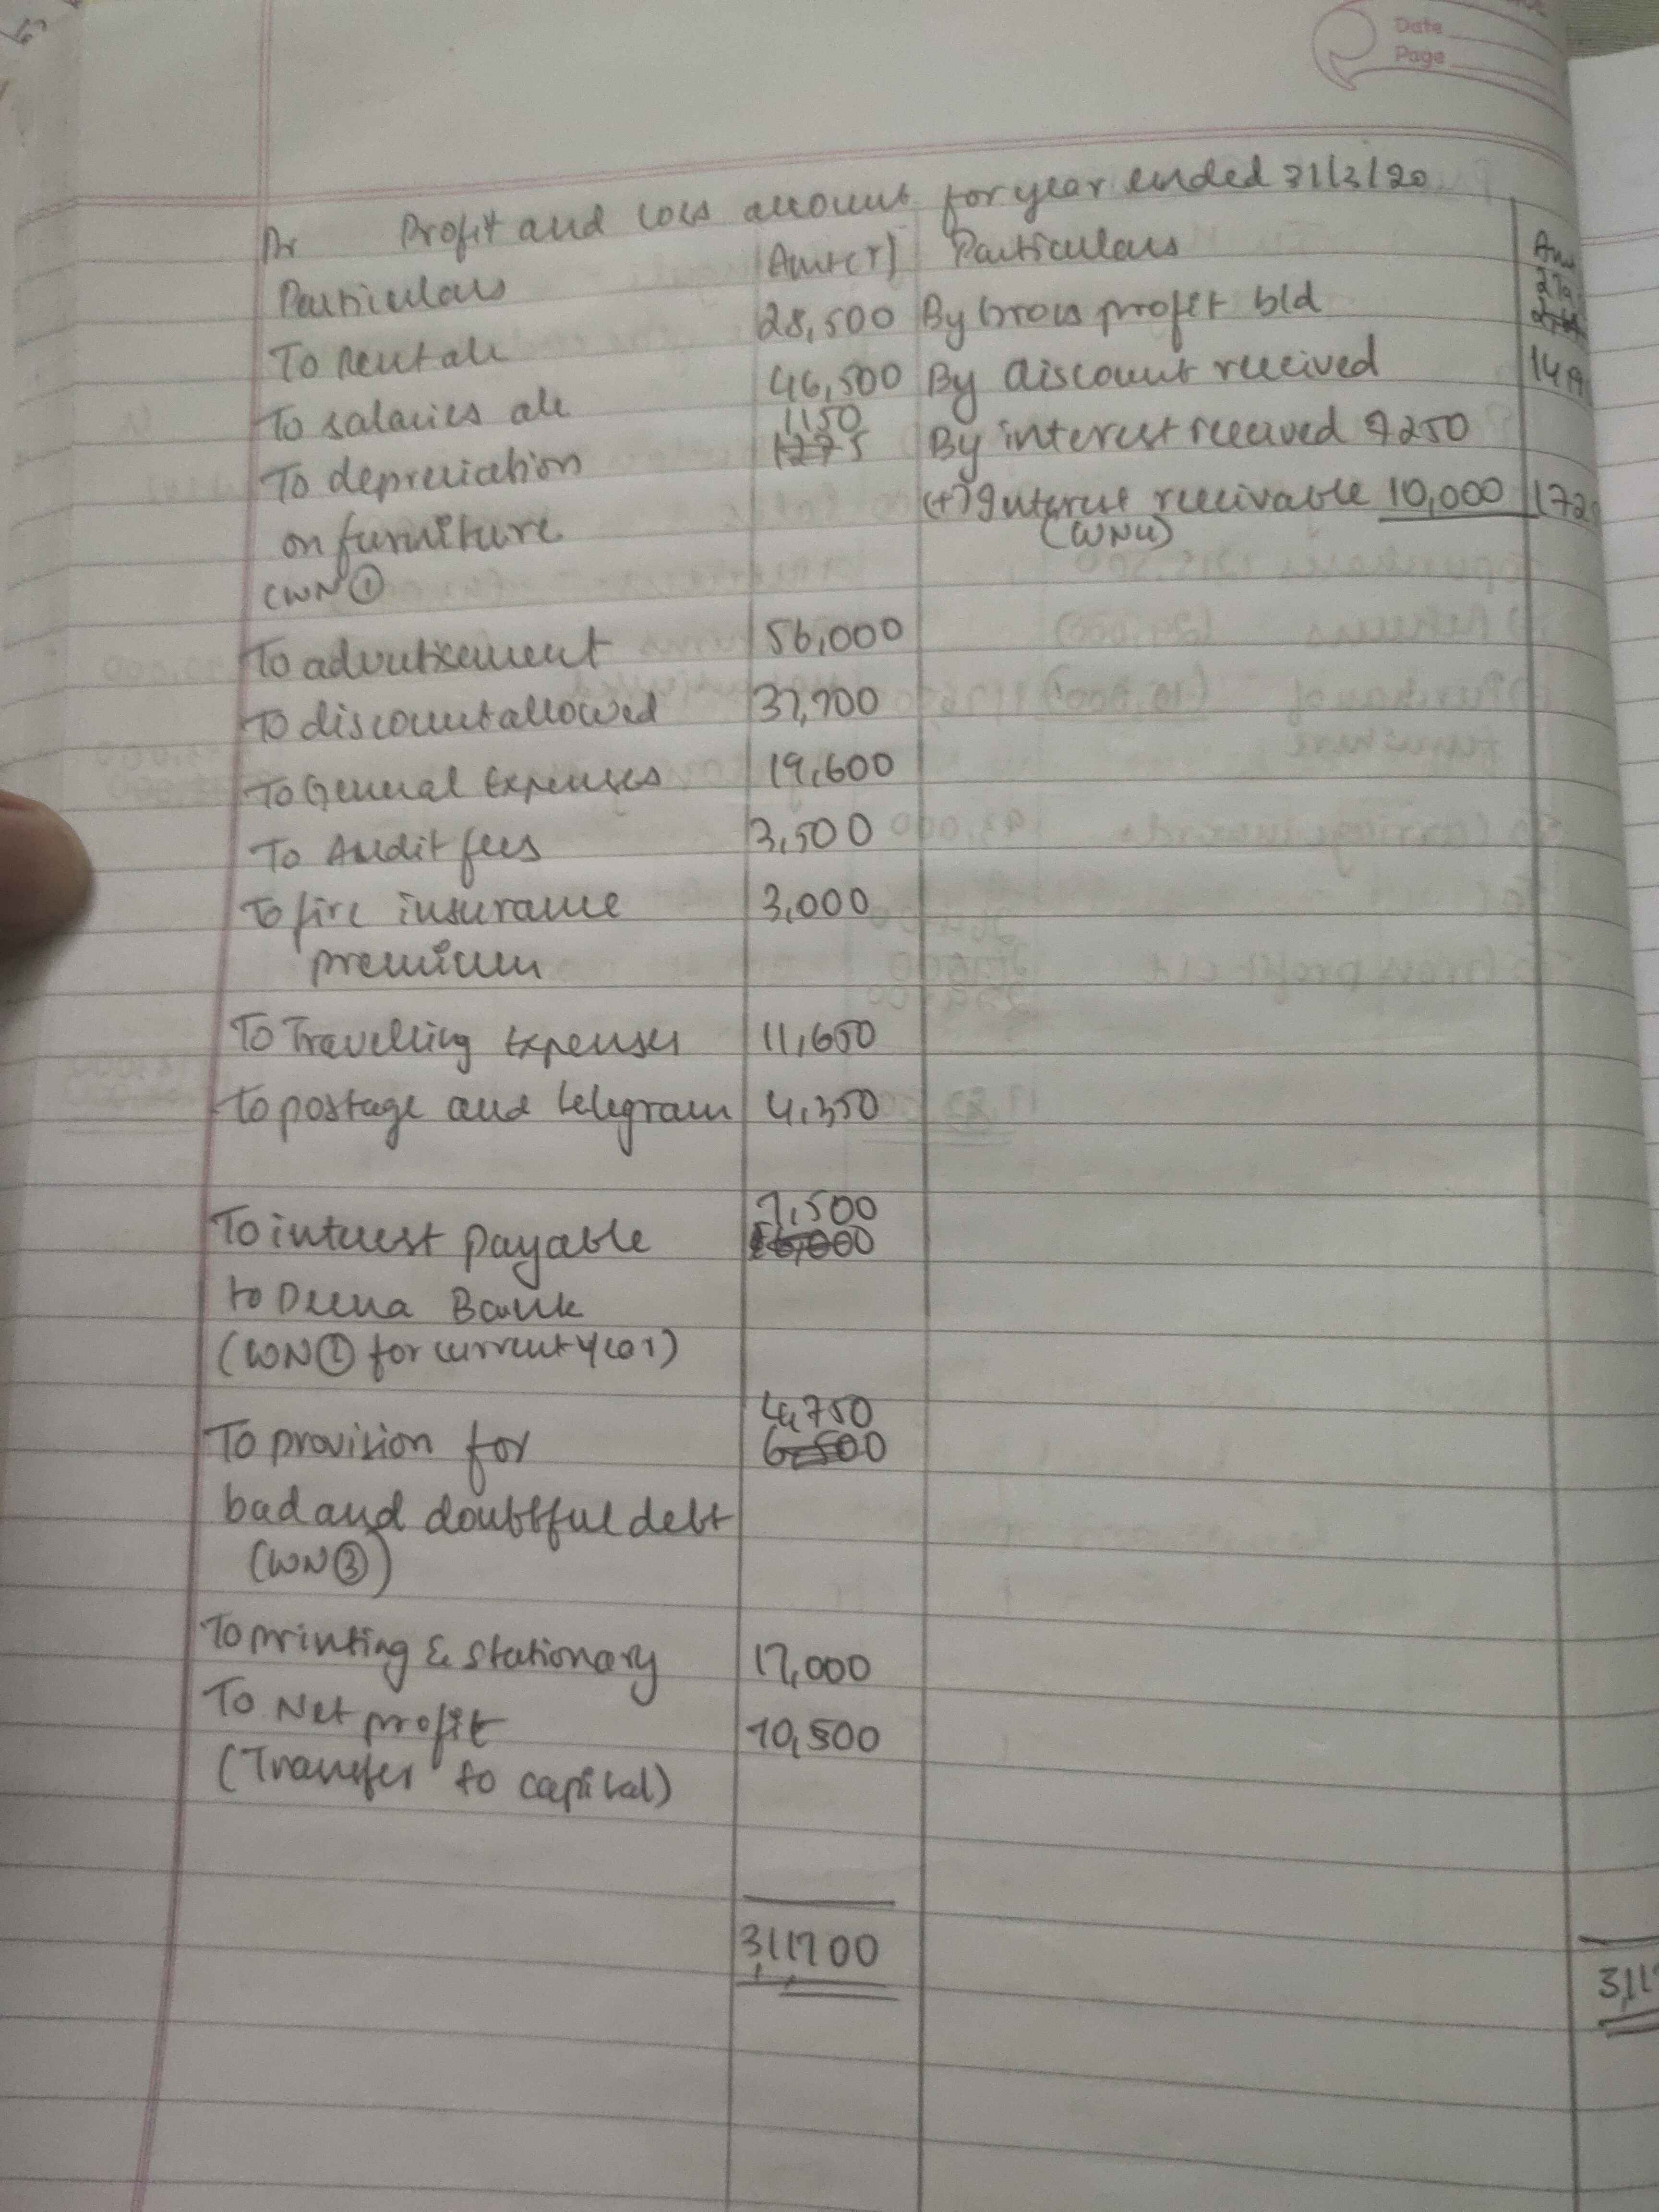 Date
Page
Dr Profit and loss account for year ended 31/3/20
Particulars Amt(₹) Particulars
To Rent a/c 28,500 By Gross profit b/d
To salaries a/c 46,500 By discount received
To depreciation 1150 By interest received 7250
1275
on furniture (+) Interest receivable 10,000
(WN 1 (WN4)
To advertisement 56,000
To discount allowed 37,700
To General Expenses 19,600
To Audit fees 3,500
To fire insurance 3,000
premium
To Travelling Expenses 11,650
To postage and telegram 4,350
7,500
To interest payable
to Deena Bank
(WN 2 for current year)
4,750
To provision for 6,500
bad and doubtful debt
(WN 3)
To printing & stationary 17,000
To Net profit 70,500
(Transfer to capital)
3,11,700